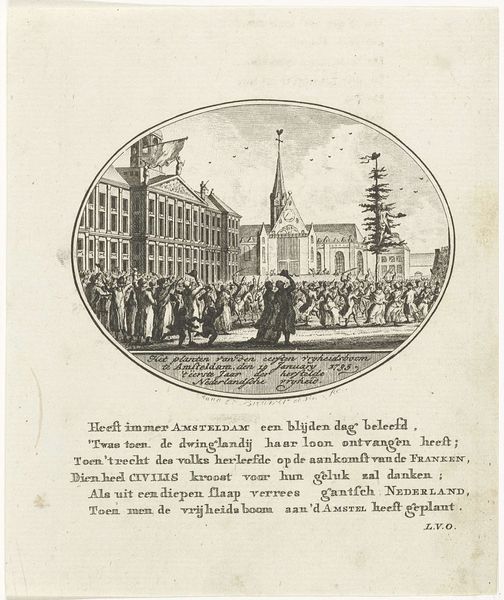 Het planten van den eersten vryheidsboom
te Amsteldam, den 19 January 1795.
't eerste Jaar der herstelde
Nederlandsche vryheid
Heeft immer AMSTELDAM een blijden dag beleefd,
'Twas toen de dwinglandij haar loon ontvangen heeft;
Toen 't recht des volks herleefde op de aankomst van de FRANKEN,
Dien heel CIVILIS kroost voor hun geluk zal danken;
Als uit een diepen slaap verrees gantsch NEDERLAND,
Toen men de vrijheidsboom aan 'd AMSTEL heeft geplant.
L.V.O.